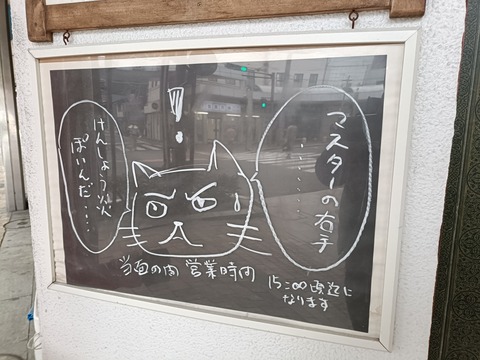 !
マスターの右手
・・・・・・・・
けんしょう炎
ぽいんだ・・・・
当面の間 営業時間
15:00頃迄に
なります